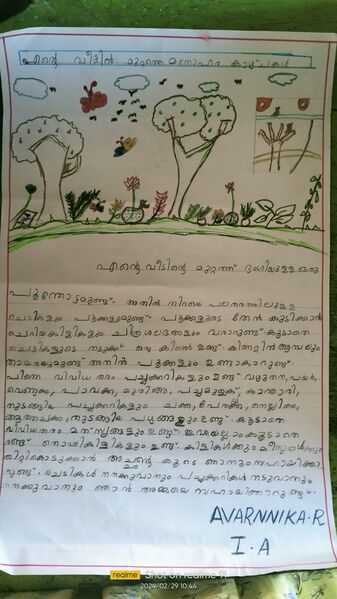 എന്റെ വീട്ടിൻ മുറ്റത്തെ മനോഹര കാഴ്ചകൾ
എന്റെ വീടിന്റെ മുറ്റത്ത് ഭംഗിയുള്ള ഒരു
പൂന്തോട്ടമുണ്ട്. അതിൽ നിറയെ പലതരത്തിലുള്ള
ചെടികളും പൂക്കളുമുണ്ട്. പൂക്കളുടെ തേൻ കുടിക്കാൻ
ചെറിയകിളികളും ചിത്രശലഭങ്ങളും വരാറുണ്ട്. കൂടാതെ
ചെടികളുടെ നടുക്ക് ഒരു കിണർ ഉണ്ട്. കിണറ്റിൻ ആമ്പലും
താമരയുമുണ്ട് അതിൻ പൂക്കളും ഉണ്ടാകാറുണ്ട്.
പിന്നെ വിവിധ തരം പച്ചക്കറികളും ഉണ്ട്. വഴുതന, പയർ,
വെണ്ടക്ക, പാവക്ക, മുരിങ്ങ, പച്ചമുളക്, കാന്താരി,
തുടങ്ങിയ പച്ചക്കറികളും ചക്ക, പേരക്ക, നെല്ലിക്ക,
ആത്തചക്ക തുടങ്ങിയ പഴങ്ങളും ഉണ്ട്. കൂടാതെ
വിവിധതരം മത്സ്യങ്ങളും ഉണ്ട്. ഇവയെല്ലാംകൂടാതെ
രണ്ട് കിളികളും ഉണ്ട്. കിളികൾക്കും മീനുകൾക്കും
തീറ്റകൊടുക്കാൻ അച്ഛന്റെ കൂടെ ഞാനും സഹായിക്കാ
റുണ്ട്. ചെടികൾ നനക്കുവാനും പച്ചക്കറികൾ നടുവാനും
നനക്കുവാനും ഞാൻ അമ്മയെ സഹായിക്കാറുണ്ട്.
AVARNNIKA.R
I.A
realme Shot on realme
2024/02/29 10:44